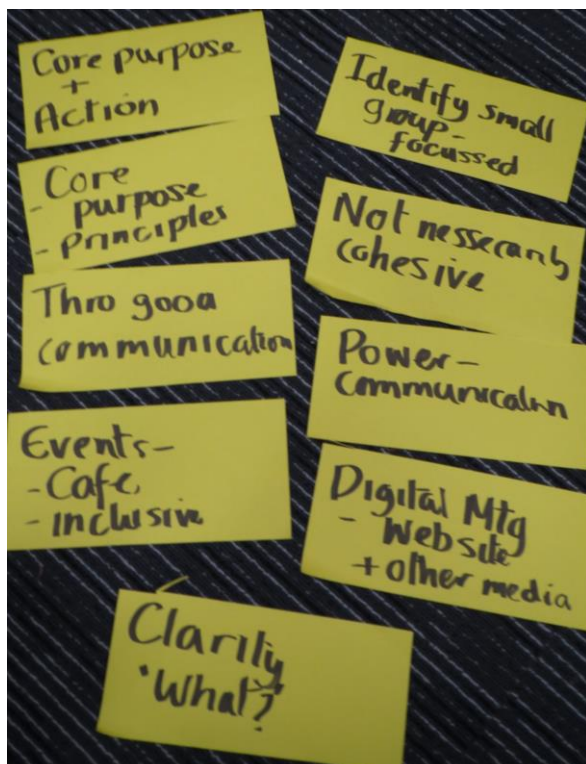 Core purpose
+
Action
- Core
purpose
- principles
Thro good
communication
Events-
- Cafe
- inclusive
Identify small
group-
focussed
Not nessecarily
cohesive
Power-
communication
Digital Mtg
- Website
+ other media
Clarity
'What?'